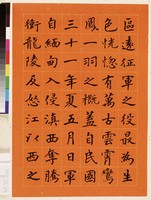 區遠征軍之役最為生
色恍惚有萬古雲霄鸞
鳳一羽之概蓋自民國
三十一年夏五月日軍
自緬甸入侵滇西奪騰
衝龍陵及怒江以西之